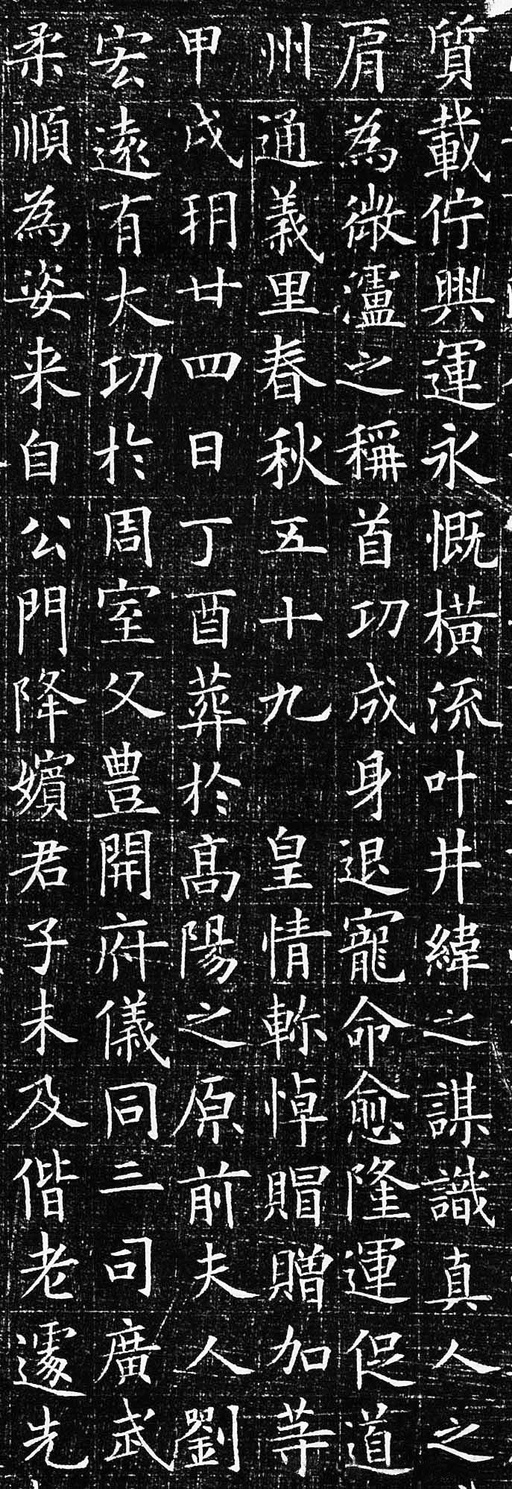 質載佇興運永慨橫流叶井緯之謀識真人之
肩為微瀘之稱首功成身退寵命愈隆運促道
州通義里春秋五十九 皇情軫悼賵贈加等
甲戌玥廿四日丁酉葬於髙陽之原前夫人劉
宏遠有大功於周室父豊開府儀同三司廣武
柔順為姿来自公門降嬪君子未及偕老遽先